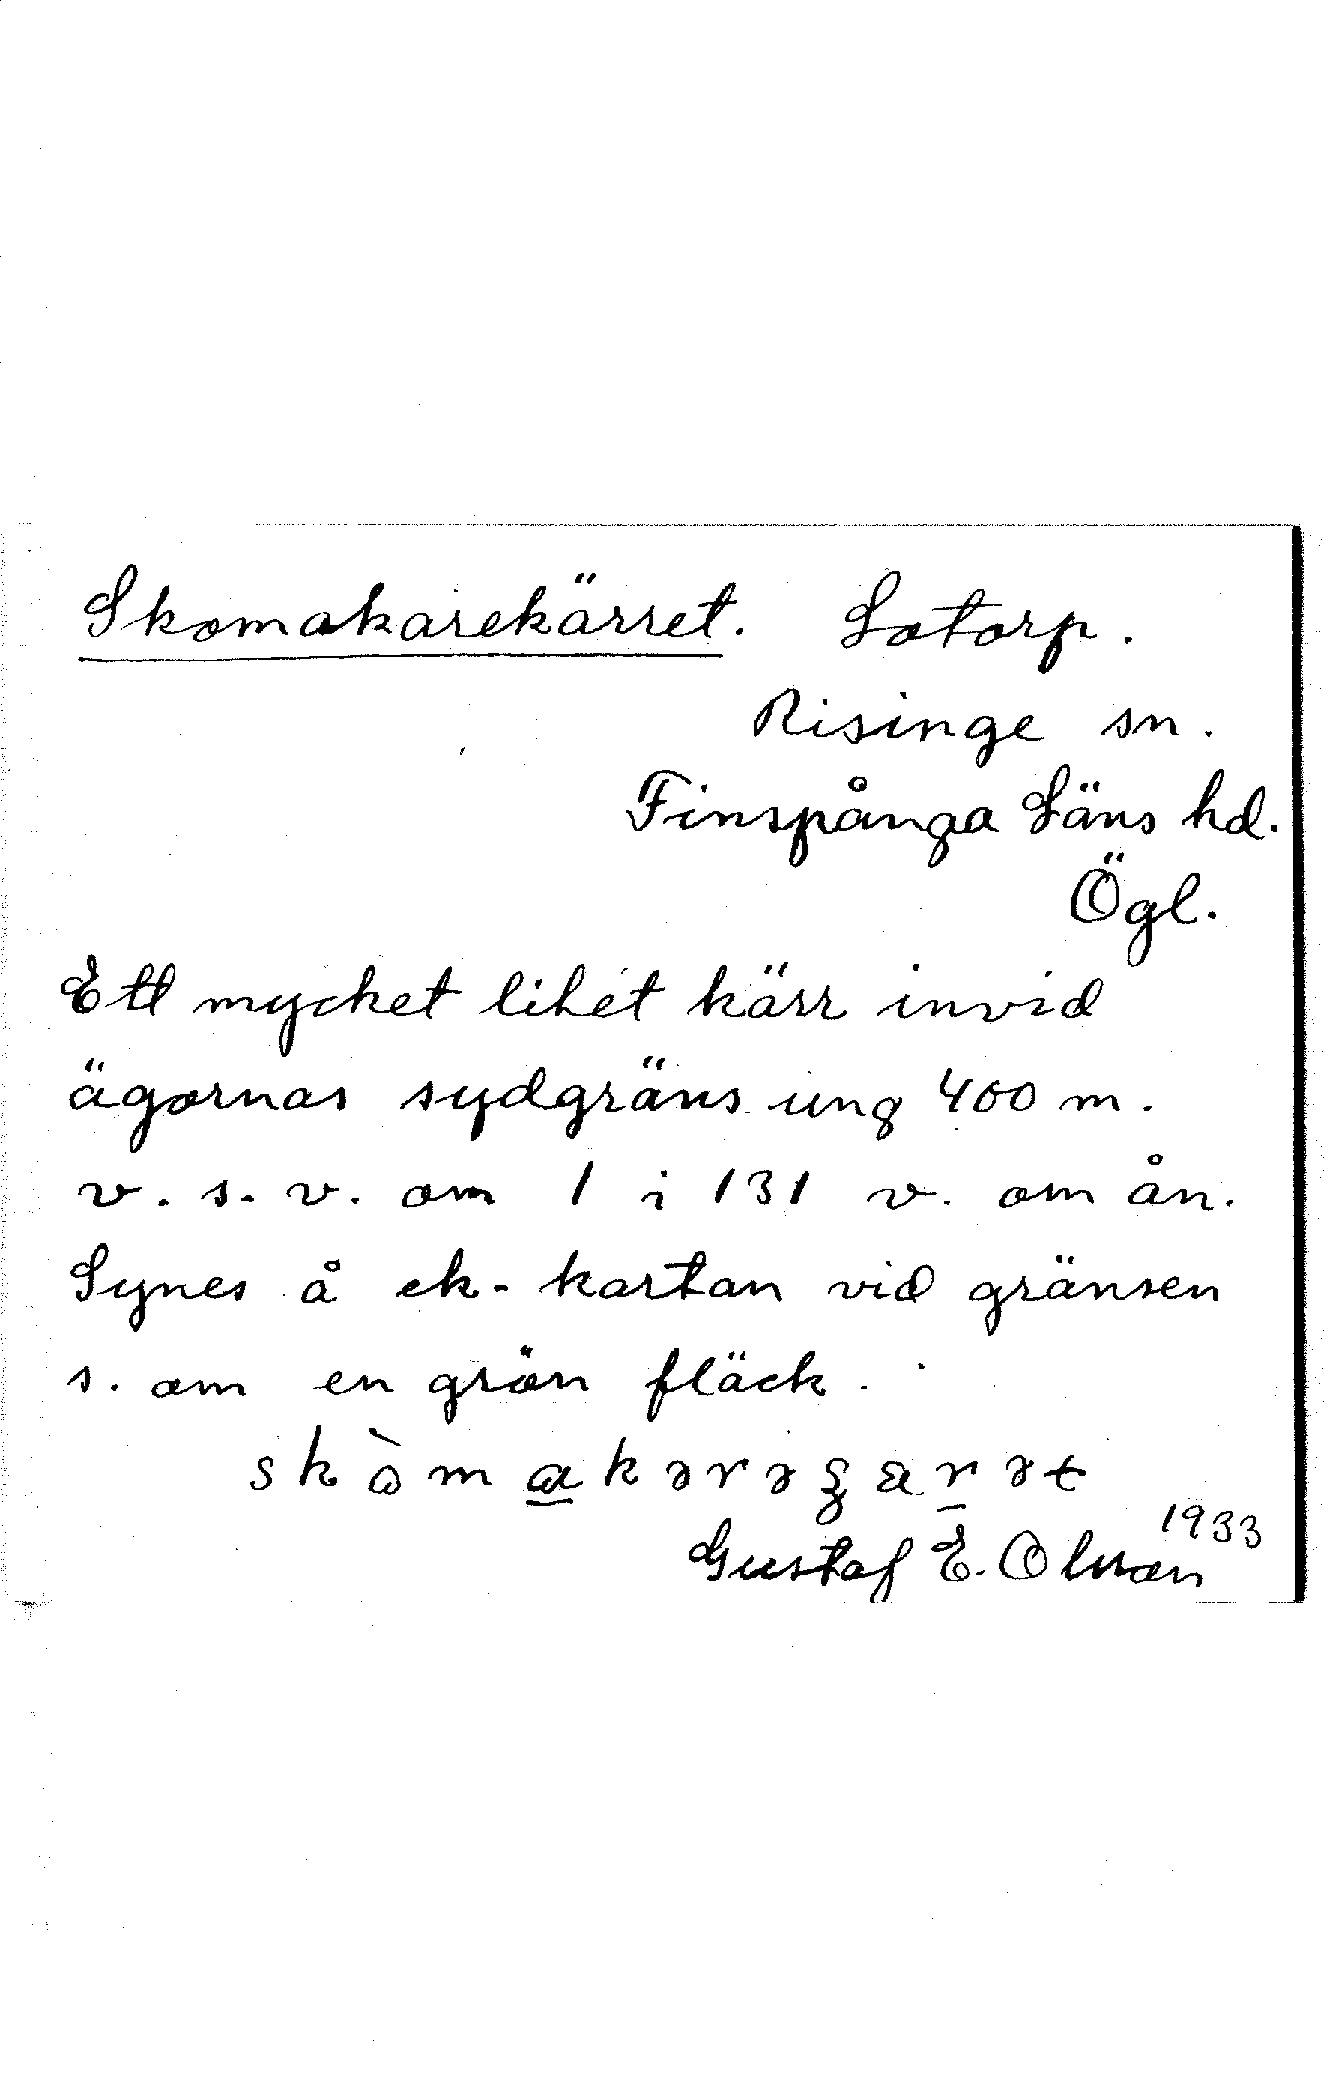 Skomakarekärret. Lotorp.
Risinge sn.
Finspånga Läns hd.
Ögl.
Ett mycket litet kärr invid
ägornas sydgräns ung 400 m.
v. s. v. om 1 i 131 v. om ån.
Synes å ek-kartan vid gränsen
s. om en grön fläck.
1933
Gustaf E. Olsson